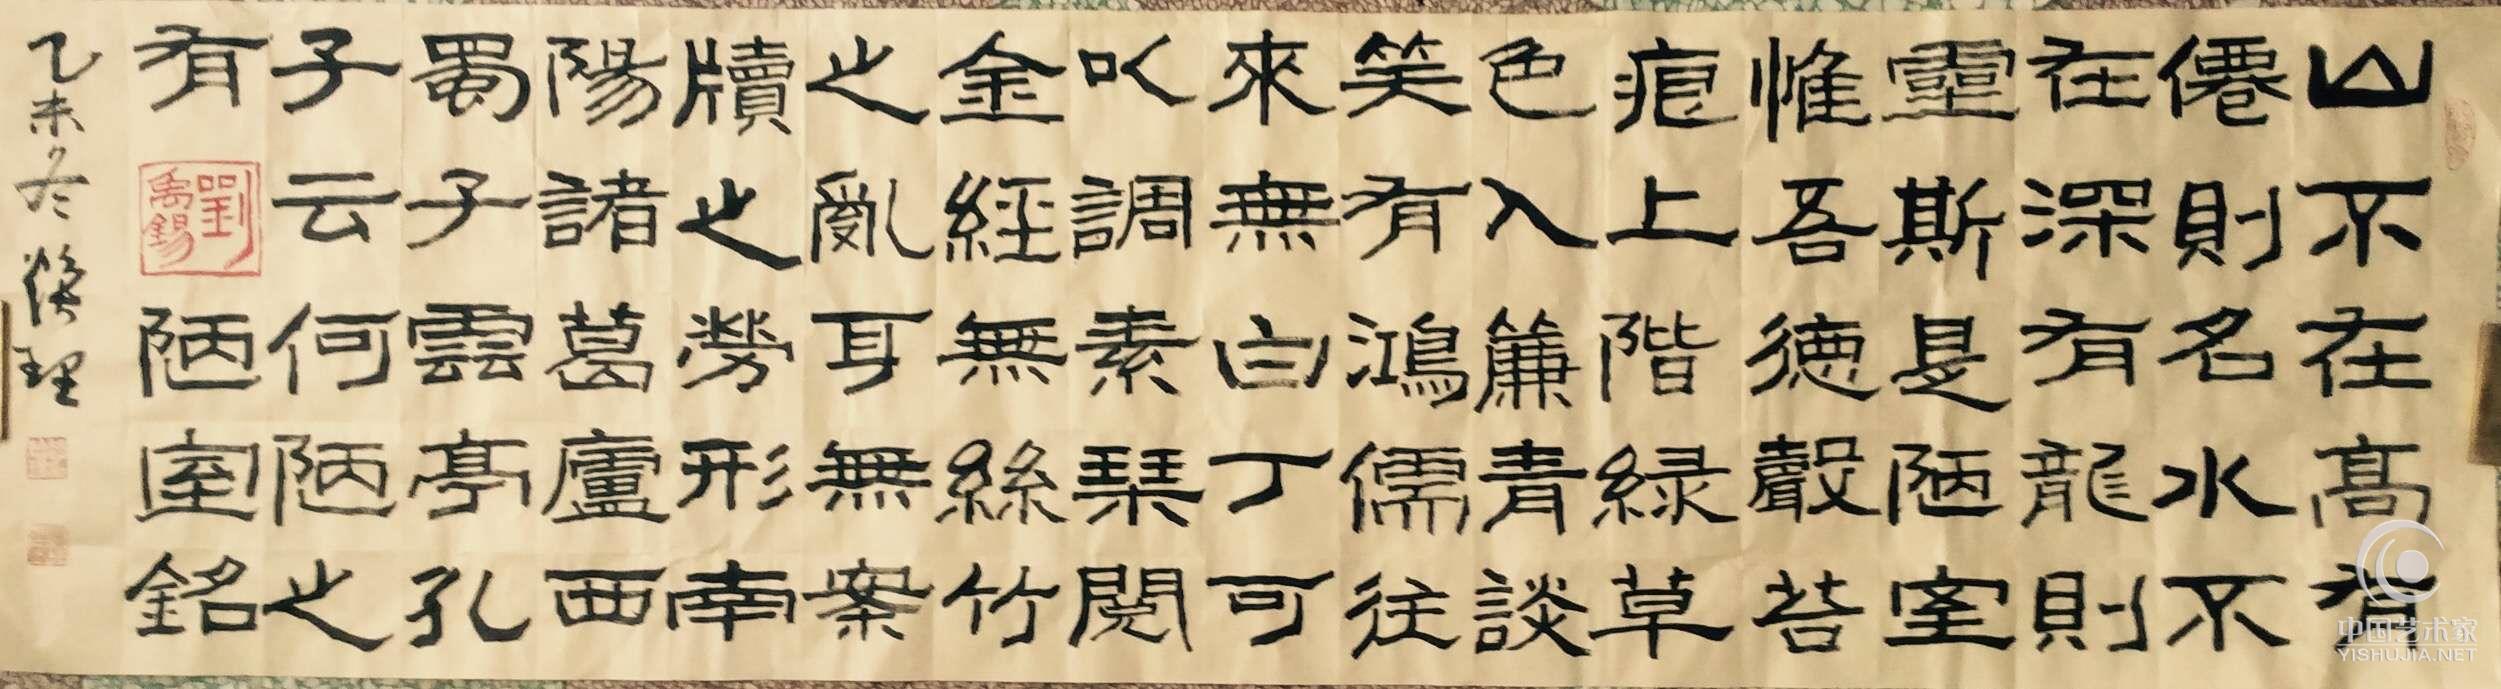 山不在高有
僊則名水不
在深有龍則
靈斯是陋室
惟吾德馨苔
痕上階緑草
色入簾青談
笑有鴻儒往
來無白丁可
以調素琴閱
金經無絲竹
之亂耳無案
牘之勞形南
陽諸葛廬西
蜀子雲亭孔
子云何陋之
有
劉禹錫
陋室銘
乙未冬 理
中国艺术家
YISHUJIA.NET